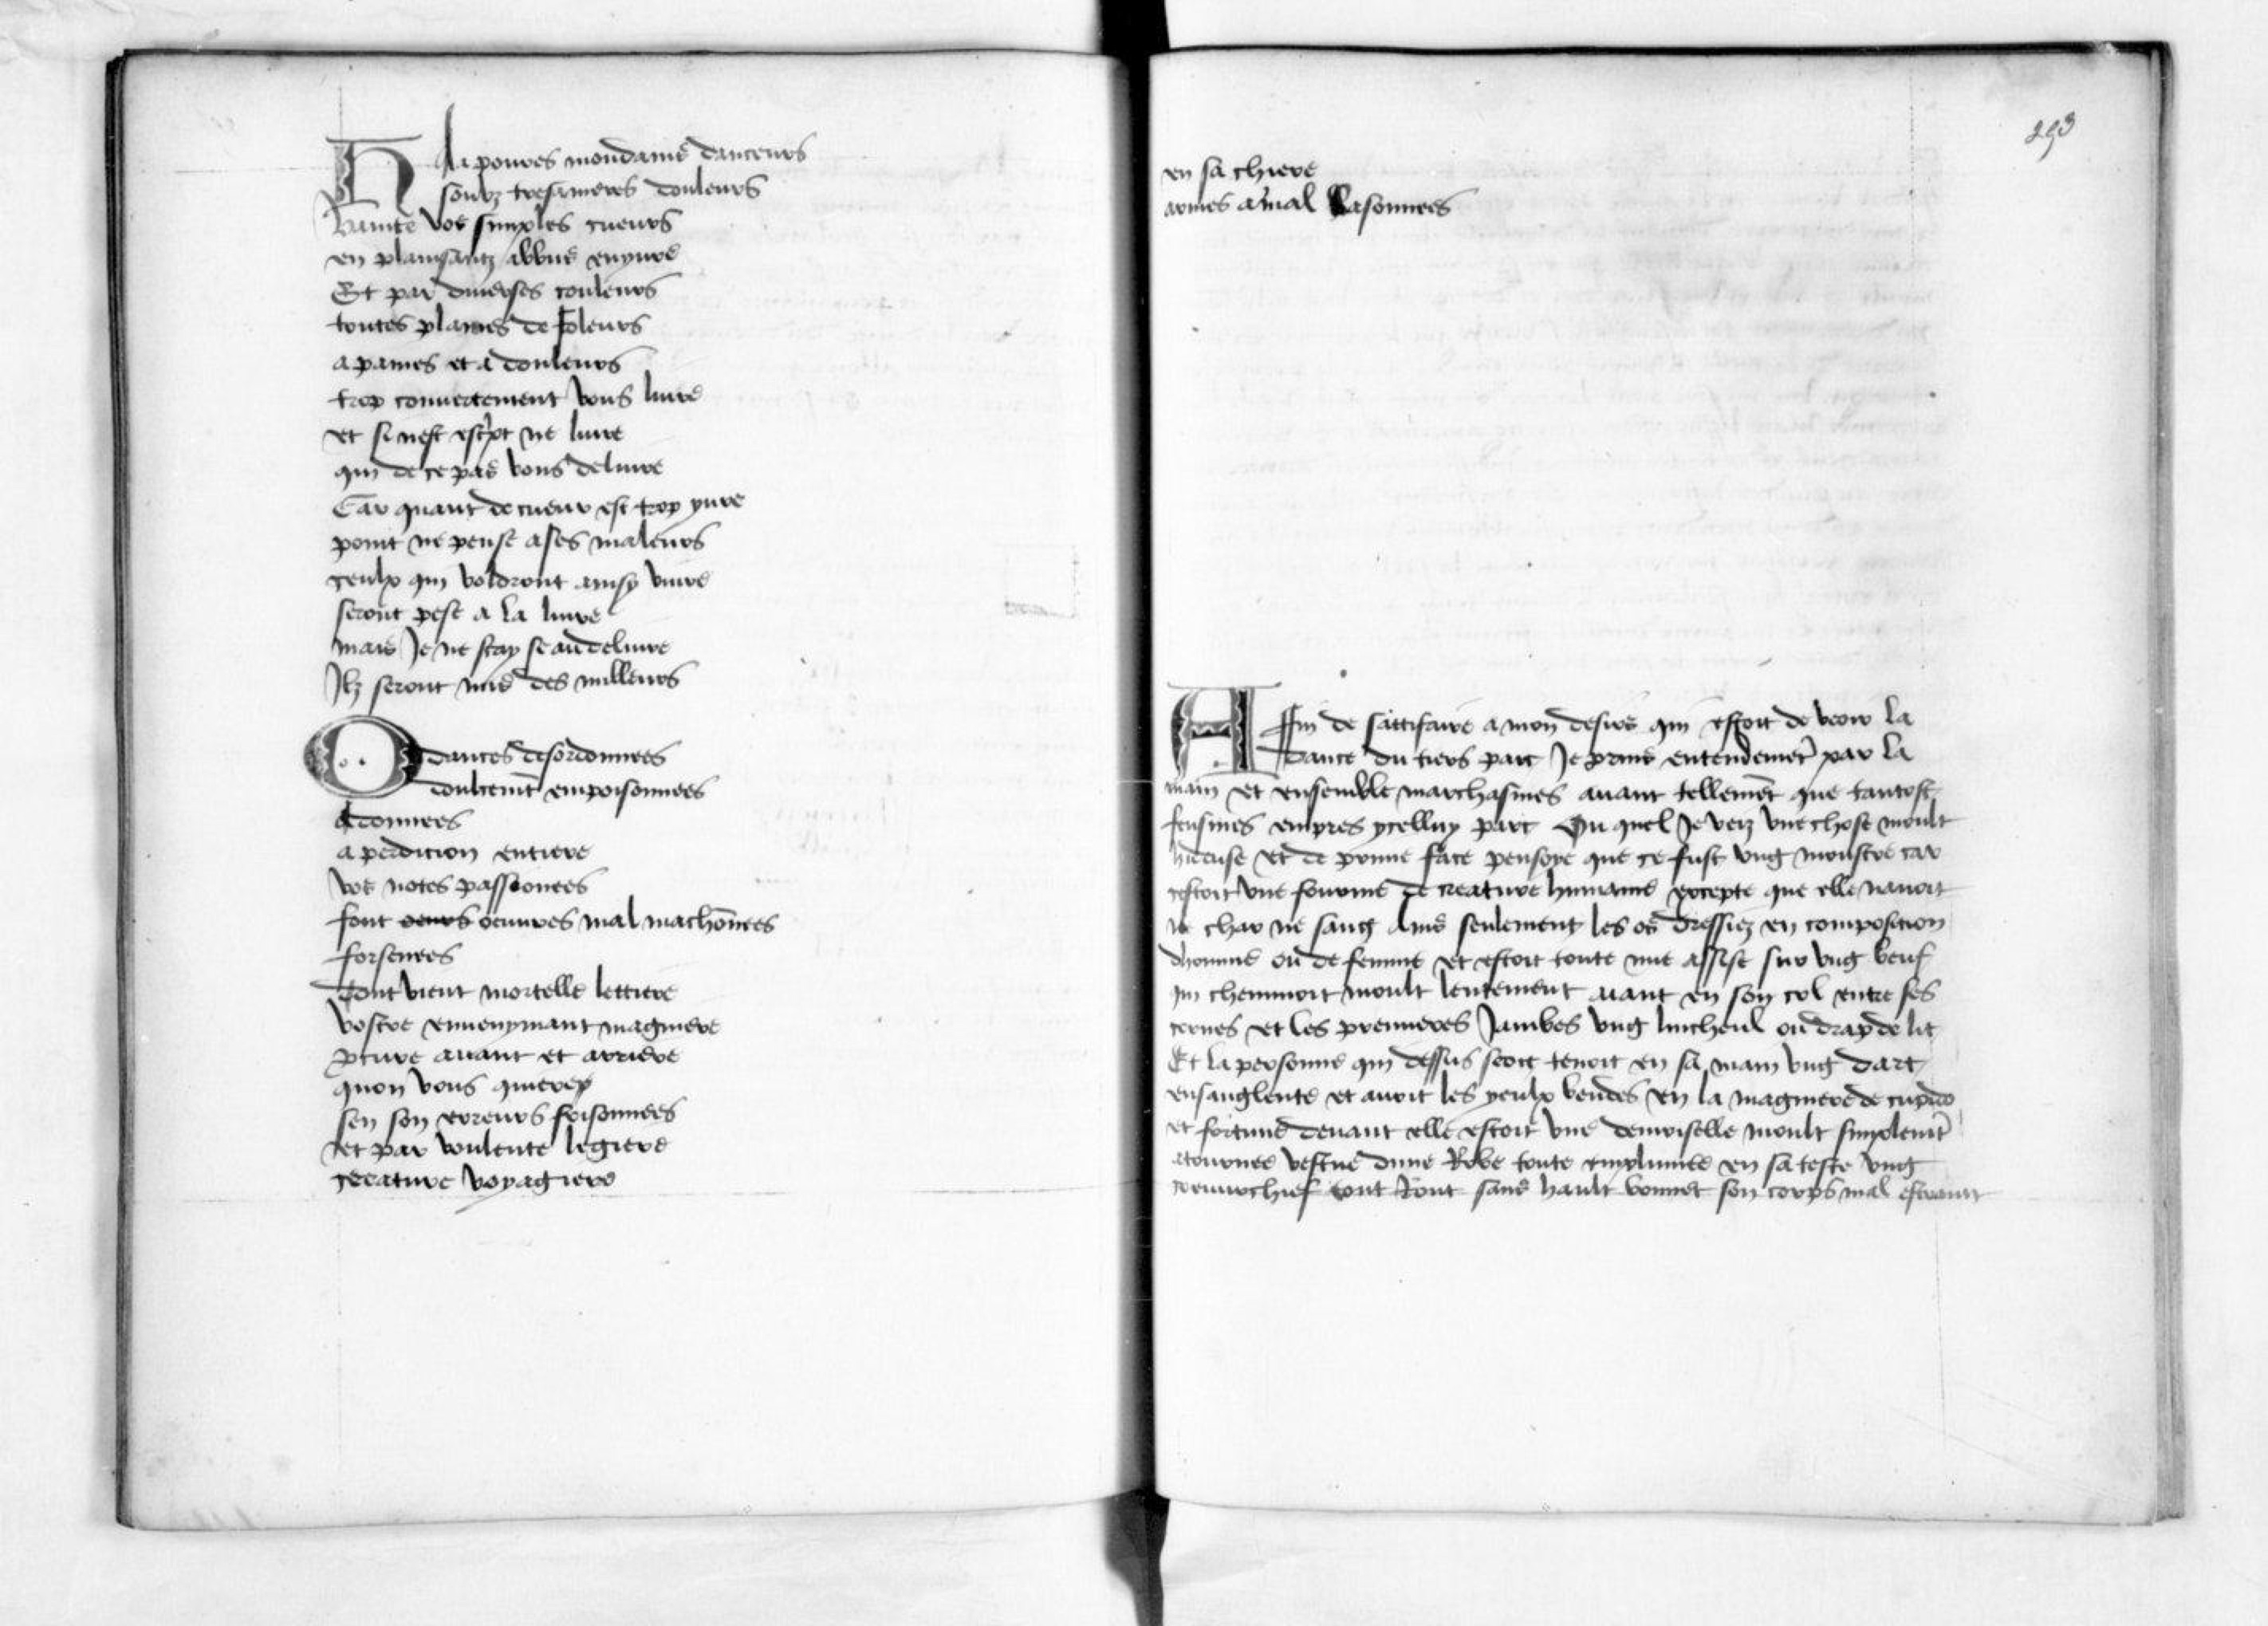 Ha povres mondains danceurs
soubz tresameres douleurs
vanité vos simples cueurs
en plaisantz abbus enyvre
Et par diverses couleurs
toutes plaines de foleurs
a paines et a douleurs
trop couvertement vous livre
et si nest escript ne livre
qui de ce pas vous delivre
Car quant de cueur est trop yvre
point ne pense a ses maleurs
ceulx qui voldront ainsy vivre
seront pesé a la livre
mais Je ne scay se au delivre
Ilz seront mis des milleurs
O dances desordonnees
doulcemt empoisonnees
adonnees
a perdition entiere
vos notes passionees
font oeuvres mal machonnees
forsenees
dont vient mortelle lettiere
vostre envenymant maginere
avant et arriere
quon vous
sen son erreurs foisonnees
et par voulenté legiere
creature voyagiere
293
en sa chiere
armes a mal blasonnees
Affin de sattifaire a mon desire qui estoit de veoir la
dance du tiers parc Je prins entendemet par la
main et ensemble marchasmes avant tellemet que tantost
feusmes empres ycelluy parc Ou quel Je veiz une chose moult
hideuse et de prime face pensoye que ce fust ung monstre car
cestoit une fourme de creature humaine excepte que elle navoit
ne char ne sang Ains seulement les os dressiez en composition
dhomme ou de femme et estoit toute nue assise sur ung beuf
qui cheminoit moult lentement aiant en son col entre ses
cornes et les premieres Jambes ung lincheul ou drap de lit
Et la personne qui dessus seoit tenoit en sa main ung dart
ensanglenté et avoit les yeulx bendes en la maginere de cupido
et fortune devant elle estoit une demoiselle moult simplemt
atournee vestue dune Robe toute emplumee en sa teste ung
coeuvrechief tout Ront sans hault bonnet son corps mal estraint